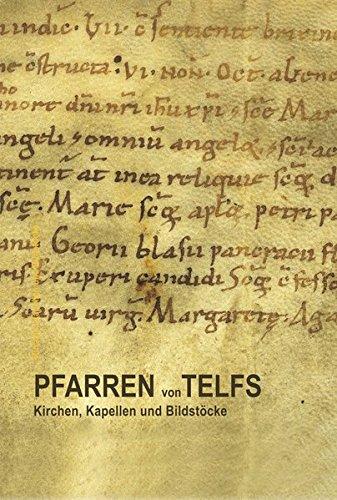 indic̄. VII. c̄sentiente brixine
ne c̄structa: VI. NON. Oct̄. ab
nore dn̄i nr̄i ihū xp̄i / sc̄e
angeli / omniū angeloꝝ
tinent̄ aūt in ea reliquie sc̄oꝝ
sc̄e. Marie sc̄oꝝ aplōꝝ petri pa
ani. Georii blasii pancracii
ris Exuperi candidi Sc̄oꝝ c̄fesso
Scarū uirgı̄. Margarete. Aga
PFARREN von TELFS
Kirchen, Kapellen und Bildstöcke